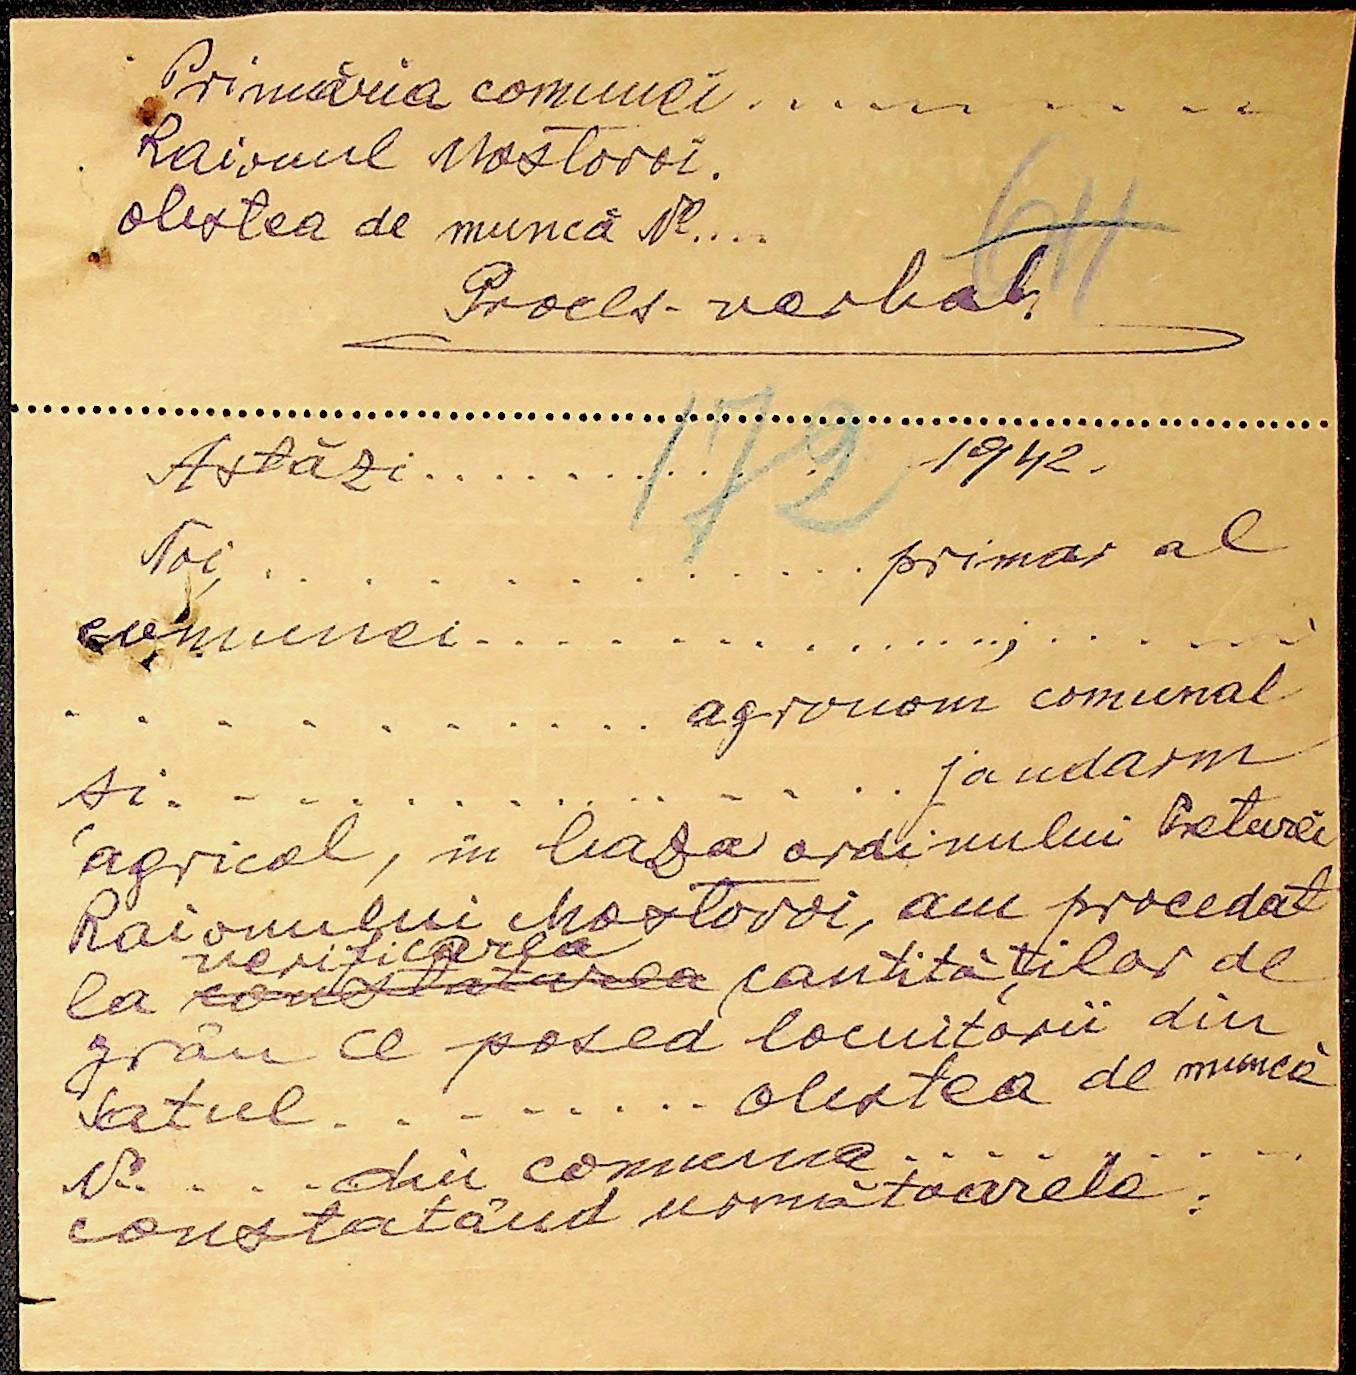 Primăria comunei . . . . . . . . . .
Raionul Mostovoi.
Obstea de muncă № ....
611
Proces-verbal.
172
Astăzi . . . . . . . . . . . . 1942.
Noi, . . . . . . . . . . . . . . primar al
comunei . . . . . . . . . . . . . , . . . . .
. . . . . . . . . . . . agronom comunal
si . . . . . . . . . . . . . . jandarm
agricol, în baza ordinului Preturei
Raionului Mostovoi, am procedat
verificarea
la constatarea cantităților de
grân ce posed locuitorii din
satul . . . . . . . . . obstea de muncă
№ . . . . din comuna . . . . . . . . .
constatând următoarele :